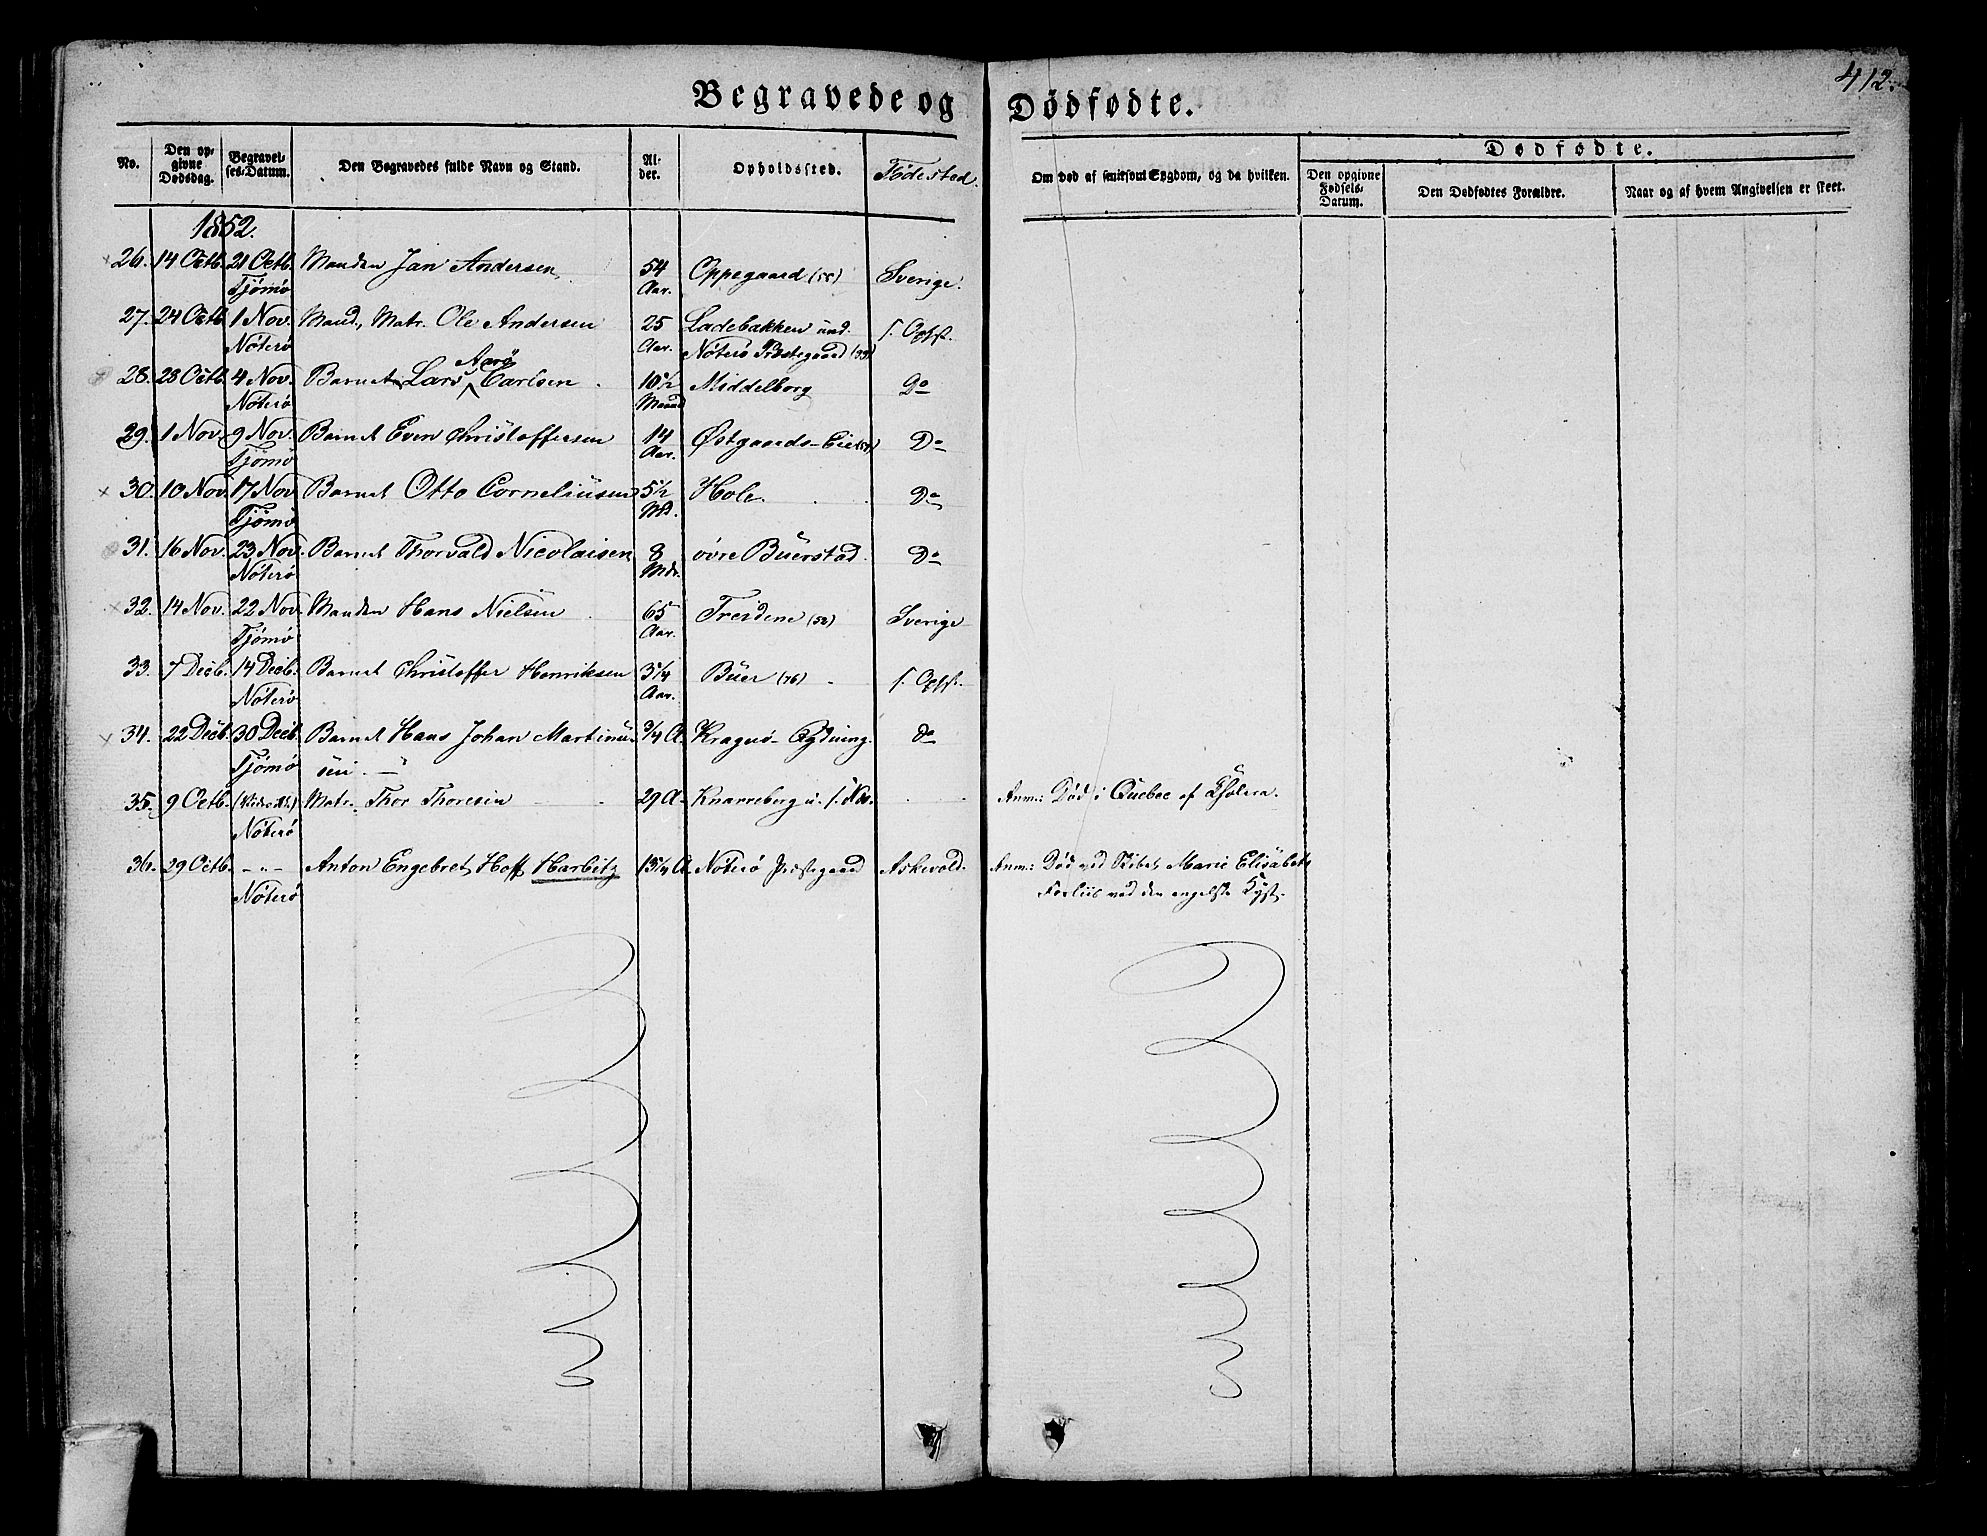 412.
Begravede og Dødfødte.
No. Den opgivne Dødsdag. Begravelses-Datum. Den Begravedes fulde Navn og Stand. Alder. Opholdssted. Fødested. Om død af smitsom Sygdom, og da hvilken. Dødfødte. Den opgivne Fødsels-Datum. Den Dødfødtes Forældre. Naar og af hvem Angivelsen er skeet.
1852.
26. 14 Octb. 21 Octb. Manden Jan Andersen 54 Oppegaard (55) Sverige.
Tjømø Aar.
27. 24 Octb. 1 Nov. Mand, Matr. Ole Andersen 25 Ladebakken und. f. Opfst.
Nøterø Aar. Nøterø Præstegaard
Aarø
28. 28 Octb. 4 Nov. Barnet Lars Carlsen 10 1/2 Middelborg Do
Nøterø Maand
29. 1 Nov. 9 Nov. Barnet Even Christoffersen 14 Østgaards-Eie Do
Tjømø Aar.
30. 10 Nov. 17 Nov. Barnet Otto Corneliusen 5 1/2 Hole. Do
Tjømø Md.
31. 16 Nov. 23 Nov. Barnet Thorvald Nicolaisen 8 øvre Buerstad. Do
Nøterø Mdr.
32. 14 Nov. 22 Nov. Manden Hans Nielsen 65 Treidene (52) Sverige
Tjømø Aar.
33. 7 Decb. 14 Decb. Barnet Christoffer Henriksen 3 1/4 Buer (76) f. Opfst.
Nøterø Aar.
34. 22 Decb. 30 Decb. Barnet Hans Johan Martinu- 3/4 A. Kragnø-Rydning. do
Tjømø sen
35. 9 Octb. Matr. Thor Thoresen 29 A. Knarreberg u. Anm: Død i Quebec af Cholera.
Nøterø
36. 29 Octb. -"- Anton Engebret Hoff Harbitz 13 3/4 A. Nøterø Præstegaard Askevold. Anm: Død ved Skibet Marie Elisabeths
Nøterø Forliis ved den engelske Kyst.